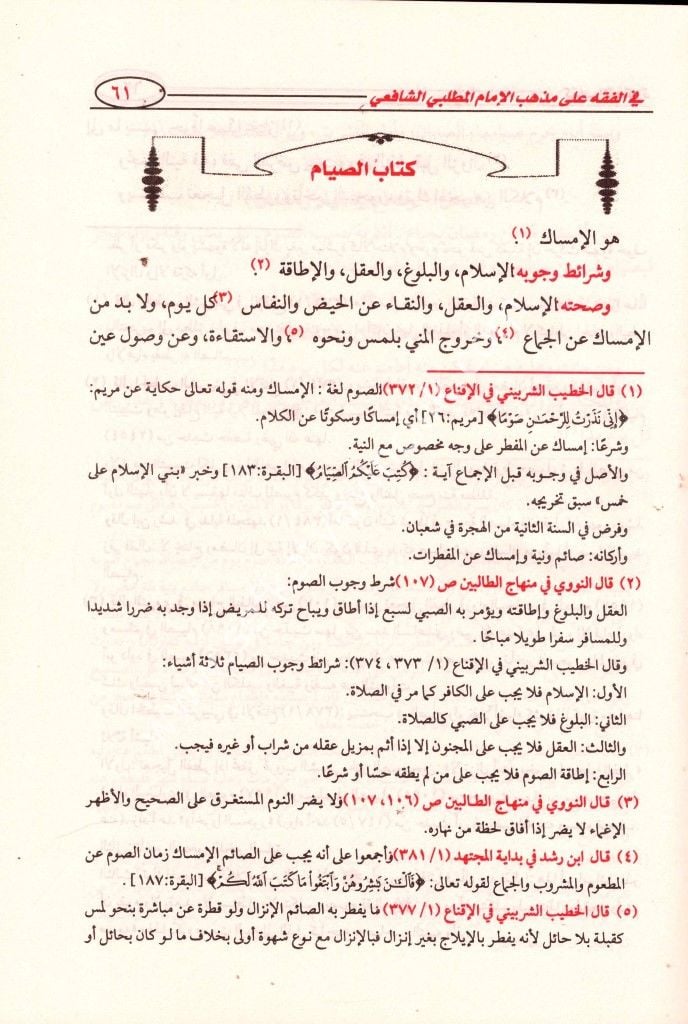 في الفقه على مذهب الإمام المطلبي الشافعي
٦١
كتاب الصيام
هو الإمساك (١).
وشرائط وجوبه: الإسلام، والبلوغ، والعقل، والإطاقة (٢).
وصحته: الإسلام، والعقل، والنقاء عن الحيض والنفاس (٣) كل يوم، ولا بد من
الإمساك عن الجماع (٤)، وخروج المني بلمس ونحوه (٥)، والاستقاءة، وعن وصول عين
(١) قال الخطيب الشربيني في الإقناع (١/ ٣٧٢) الصوم لغة : الإمساك ومنه قوله تعالى حكاية عن مريم:
﴿إِنِّي نَذَرْتُ لِلرَّحْمَٰنِ صَوْمًا﴾ [مريم:٢٦] أي إمساكًا وسكوتًا عن الكلام.
وشرعًا: إمساك عن المفطر على وجه مخصوص مع النية.
والأصل في وجوبه قبل الإجماع آية : ﴿كُتِبَ عَلَيْكُمُ ٱلصِّيَامُ﴾ [البقرة:١٨٣] وخبر «بني الإسلام على
خمس» سبق تخريجه.
وفرض في السنة الثانية من الهجرة في شعبان.
وأركانه: صائم ونية وإمساك عن المفطرات.
(٢) قال النووي في منهاج الطالبين ص (١٠٧) شرط وجوب الصوم:
العقل والبلوغ وإطاقته ويؤمر به الصبي لسبع إذا أطاق ويباح تركه للمريض إذا وجد به ضررا شديدا
وللمسافر سفرا طويلا مباحًا .
وقال الخطيب الشربيني في الإقناع (١/ ٣٧٣، ٣٧٤): شرائط وجوب الصيام ثلاثة أشياء:
الأول: الإسلام فلا يجب على الكافر كما مر في الصلاة.
الثاني: البلوغ فلا يجب على الصبي كالصلاة.
والثالث: العقل فلا يجب على المجنون إلا إذا أثم بمزيل عقله من شراب أو غيره فيجب.
الرابع: إطاقة الصوم فلا يجب على من لم يطقه حسًا أو شرعًا.
(٣) قال النووي في منهاج الطالبين ص (١٠٦، ١٠٧) ولا يضر النوم المستغرق على الصحيح والأظهر
الإغماء لا يضر إذا أفاق لحظة من نهاره.
(٤) قال ابن رشد في بداية المجتهد (١/ ٣٨١) وأجمعوا على أنه يجب على الصائم الإمساك زمان الصوم عن
المطعوم والمشروب والجماع لقوله تعالى: ﴿فَٱلْـَٰٔنَ بَٰشِرُوهُنَّ وَٱبْتَغُوا۟ مَا كَتَبَ ٱللَّهُ لَكُمْ﴾ [البقرة:١٨٧] .
(٥) قال الخطيب الشربيني في الإقناع (١/ ٣٧٧) فما يفطر به الصائم الإنزال ولو قطرة عن مباشرة بنحو لمس
كقبلة بلا حائل لأنه يفطر بالإيلاج بغير إنزال فبالإنزال مع نوع شهوة أولى بخلاف ما لو كان بحائل أو